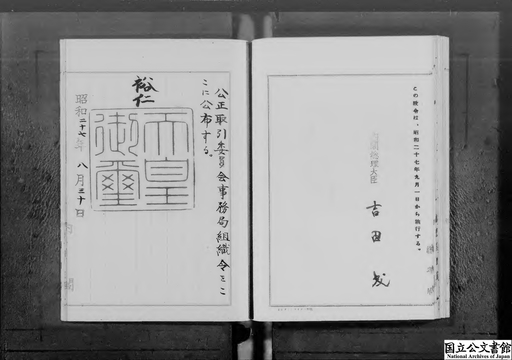 この政令は、昭和二十七年九月一日から施行する。
内閣総理大臣
吉田茂
公正取引委員会事務局組織令をここに公布する。
裕仁
天皇
御璽
昭和二十七年八月三十日
国立公文書館
National Archives of Japan